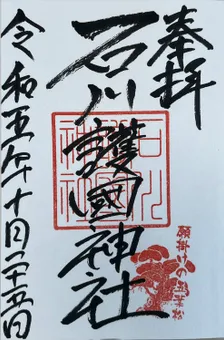 奉拝
石川護國神社
令和五年十月二十五日
願掛けの五葉松